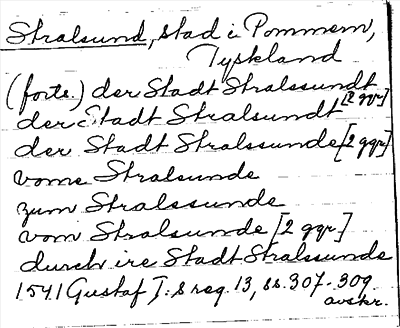 Stralsund, stad i Pommern,
Tyskland
(forts.) der Stadt Stralssundt
der Stadt Stralsundt [2 ggr]
der Stadt Stralssunde [2 ggr]
vome Stralsunde
zum Stralssunde
vom Stralsunde [2 ggr]
durch ire Stadt Stralssunde
1541 Gustaf I:s reg. 13, ss. 307-309
avskr.